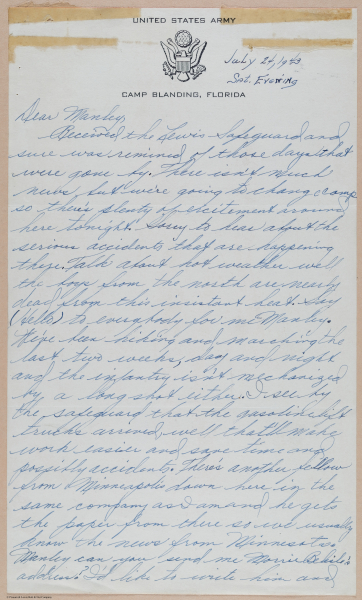 UNITED STATES ARMY
July 24, 1943
Sat. Evening
CAMP BLANDING, FLORIDA
Dear Manley,
Received the Lewis Safeguard and
sure was remined of those days that
were gone by. There isn't much
news, but we're going to change camp
so there's plenty of excitement around
here tonight. Sorry to hear about the
serious accidents that are happening
there. Talk about hot weather well
the boys from the north are nearly
dead from this insistant heat. Say
(Hello) to everybody for me Manley.
been hiking and marching the
last two weeks, day and night
and the infantry isn't mechanized
by a long shot either. I see by
the safeguard that the gasoline lift
trucks arrived, well that'll make
work easier and save time and
possibly accidents. There's another fellow
from Minneapolis down here in the
same company as I am and he gets
the paper from there so we usually
know the news from Minnesota.
Manley can you send me Morris
address? I'd like to write him and